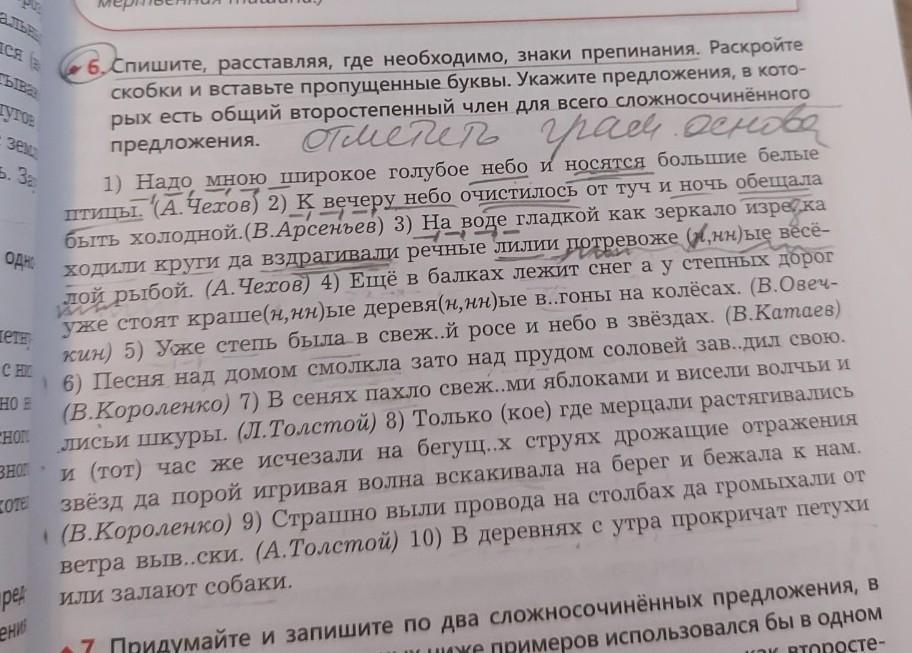 6. Спишите, расставляя, где необходимо, знаки препинания. Раскройте
скобки и вставьте пропущенные буквы. Укажите предложения, в кото-
рых есть общий второстепенный член для всего сложносочинённого
предложения. отметить грам. основа
1) Надо мною широкое голубое небо и носятся большие белые
птицы. (А.Чехов) 2) К вечеру небо очистилось от туч и ночь обещала
быть холодной.(В.Арсеньев) 3) На воде гладкой как зеркало изре_ка
ходили круги да вздрагивали речные лилии потревоже (н,нн)ые весё-
лой рыбой. (А.Чехов) 4) Ещё в балках лежит снег а у степных дорог
уже стоят краше(н,нн)ые деревя(н,нн)ые в..гоны на колёсах. (В.Овеч-
кин) 5) Уже степь была в свеж..й росе и небо в звёздах. (В.Катаев)
6) Песня над домом смолкла зато над прудом соловей зав..дил свою.
(В.Короленко) 7) В сенях пахло свеж..ми яблоками и висели волчьи и
лисьи шкуры. (Л.Толстой) 8) Только (кое) где мерцали растягивались
и (тот) час же исчезали на бегущ..х струях дрожащие отражения
звёзд да порой игривая волна вскакивала на берег и бежала к нам.
(В.Короленко) 9) Страшно выли провода на столбах да громыхали от
ветра выв..ски. (А.Толстой) 10) В деревнях с утра прокричат петухи
или залают собаки.
7. Придумайте и запишите по два сложносочинённых предложения, в
ниже примеров использовался бы в одном